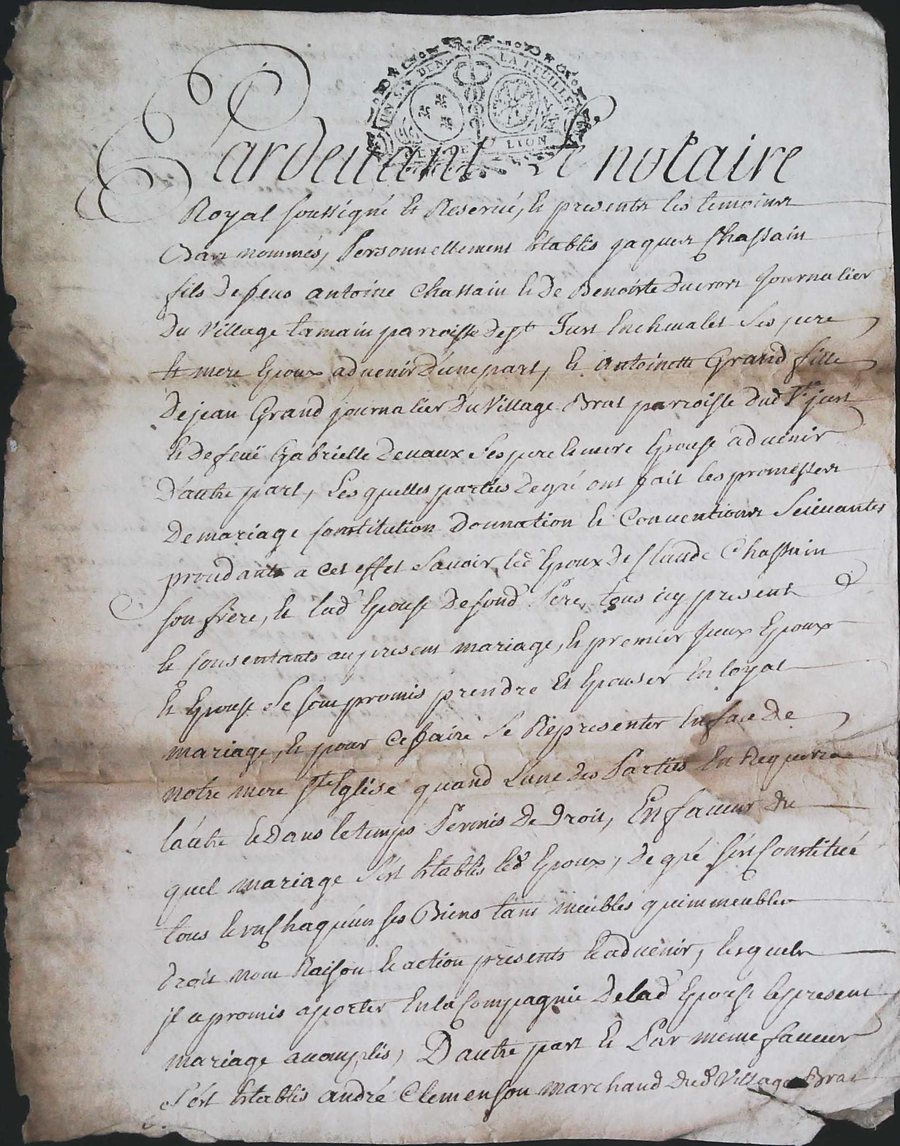 UN S. 4 DEN. LA FEUILLE
GEN. DE LYON
Pardevant le notaire
Royal soussigné et Reservé, et presents les temoins
Bas nommés, Personnellement Etablis jaques Chassain
fils de feus antoine Chassain et de Benoiste Ducros journalier
Du Village Lamain parroisse de st Just Enchevalet Ses pere
et mere Epoux advenir d'une part, et Antoinette Grand fille
De jean Grand journalier Du Village Brat parroisse dud st just
et de feüe Gabrielle Devaux Ses pere et mere Epouse advenir
D'autre part, Lesquelles parties de gré ont fait les promesses
De mariage Constitution Donnation et Conventions Seüvantes
proudants a cet effet Savoir led Epoux de Claude Chassain
son frere, et lad Epouse de sond Pere, tous icy present
et Consentants au present mariage, et premier jceux Epoux
et Epouse Se sont promis prendre et Epouser En loyal
mariage, et pour ce faire Se Representer En face de
notre mere ste Eglise quand L'une des Parties En Requerra
l'autre et Dans le temps Permis de Droit, En faveur du
quel mariage S'est Etablis led Epoux, de gré s'est Constitué
tous et un Chaqu'un ses Biens tant meubles qu'immeubles
droit nom Raison et action présents et advenir, lesquels
jl a promis aporter En la Compagnie De lad Epouse le present
mariage accomplis, D'autre part et Par meme faveur
S'est Etablis andré Clemenson marchand dud Village Brat